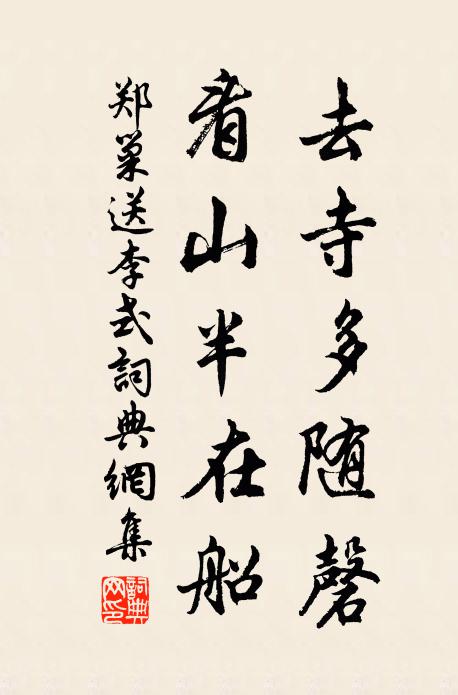 去寺多随磬
看山半在船
郑巢送李式詞典網集
詞典網印